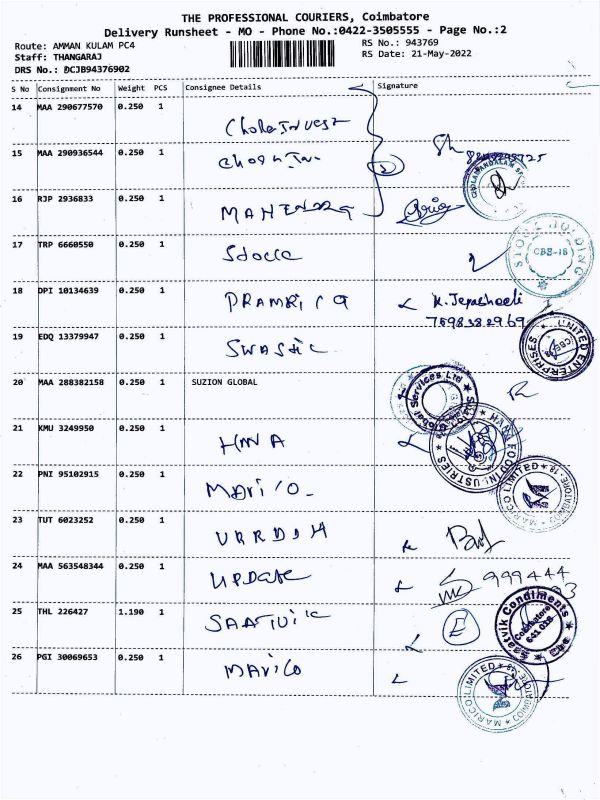 THE PROFESSIONAL COURIERS, Coimbatore
Delivery Runsheet - MO - Phone No.:0422-3505555 - Page No.:2
Route: AMMAN KULAM PC4
RS No.: 943769
Staff: THANGARAJ
RS Date: 21-May-2022
DRS No.: DCJB94376902
S No Consignment No Weight PCS Consignee Details Signature
14 MAA 290677570 0.250 1
Chola INVEST
15 MAA 290936544 0.250 1
2
16 RJP 2936833 0.250 1
MAHENDRA
17 TRP 6660550 0.250 1
CBE-18
STOCK HOLDING
18 DPI 10134639 0.250 1
PRAMRICA
7598382969
19 EDQ 13379947 0.250 1
SWASTIC
UNITED ENTERPRISES
20 MAA 288382158 0.250 1 SUZION GLOBAL
Global Services Ltd
21 KMU 3249950 0.250 1
FOOD INDUSTRIES
22 PNI 95102915 0.250 1
MARICO
MARICO LIMITED COIMBATORE 18
23 TUT 6023252 0.250 1
24 MAA 563548344 0.250 1
UPDATE
999444
25 THL 226427 1.190 1
SAATVIK
E
Saatvik Condiments
Coimbatore
641 028
26 PGI 30069653 0.250 1
MARICO
MARICO LIMITED COIMBATORE 18